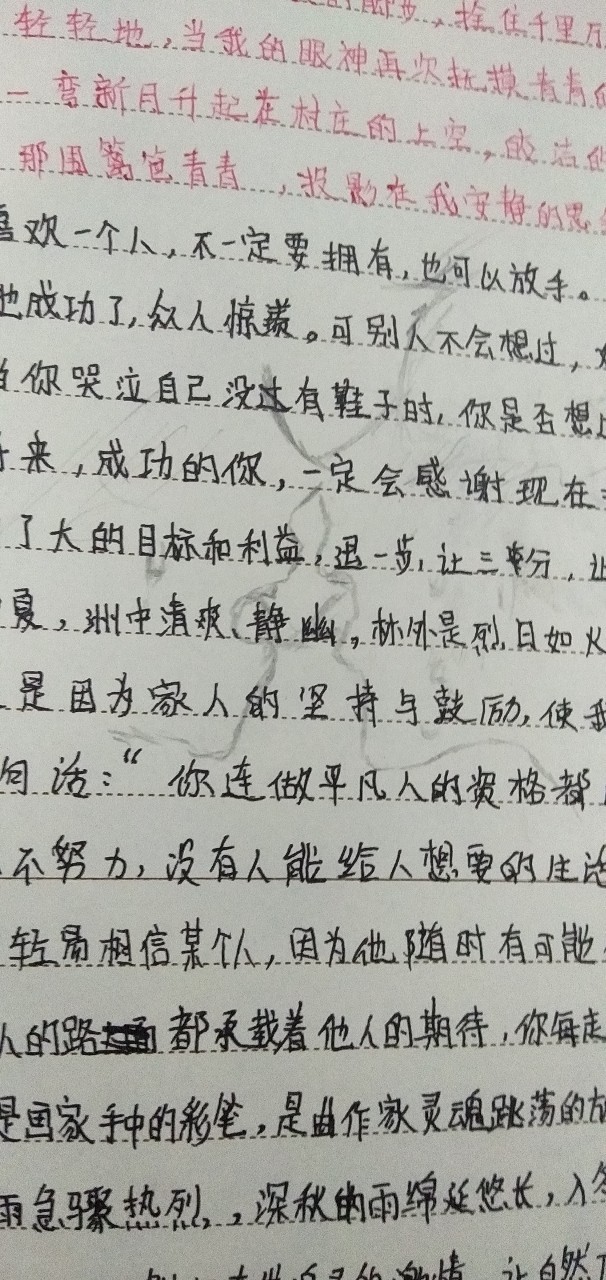 拴住千里万
轻轻地,当我的眼神再次抚摸青青的
一弯新月升起在村庄的上空,皎洁的
那围篱笆青青,投影在我安静的思
喜欢一个人,不一定要拥有,也可以放手。
他成功了,众人惊羡。可别人不会想过,
当你哭泣自己没过有鞋子时,你是否想
来,成功的你,一定会感谢现在
了大的目标和利益,退一步,让三分,让
夏,洲中清爽、静幽,林外是烈日如火
是因为家人的坚持与鼓励,使我
句话:“你连做平凡人的资格都
不努力,没有人能给人想要的生活
轻易相信某个人,因为他随时有可能
人的路都承载着他人的期待,你每走
是画家手中的彩笔,是曲作家灵魂跳荡的
雨急骤热烈,,深秋的雨绵延悠长,入冬
的激情,让自然